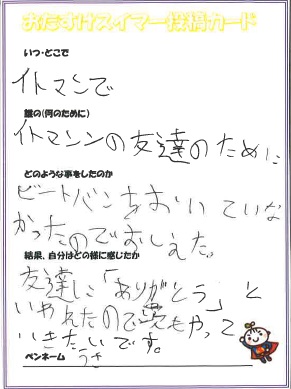 おたすけスイマー投稿カード
いつ・どこで
イトマンで
誰の(何のために)
イトマンンの友達のために
どのような事をしたのか
ビートバンをおいていな
かったのでおしえた。
結果、自分はどの様に感じたか
友達に「ありがとう」と
いわれたので もやって
いきたいです。
ペンネーム うさ